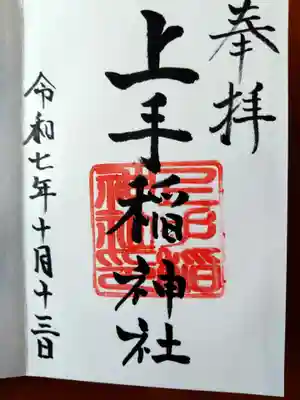 奉拝
上手稲神社
令和七年十月十三日